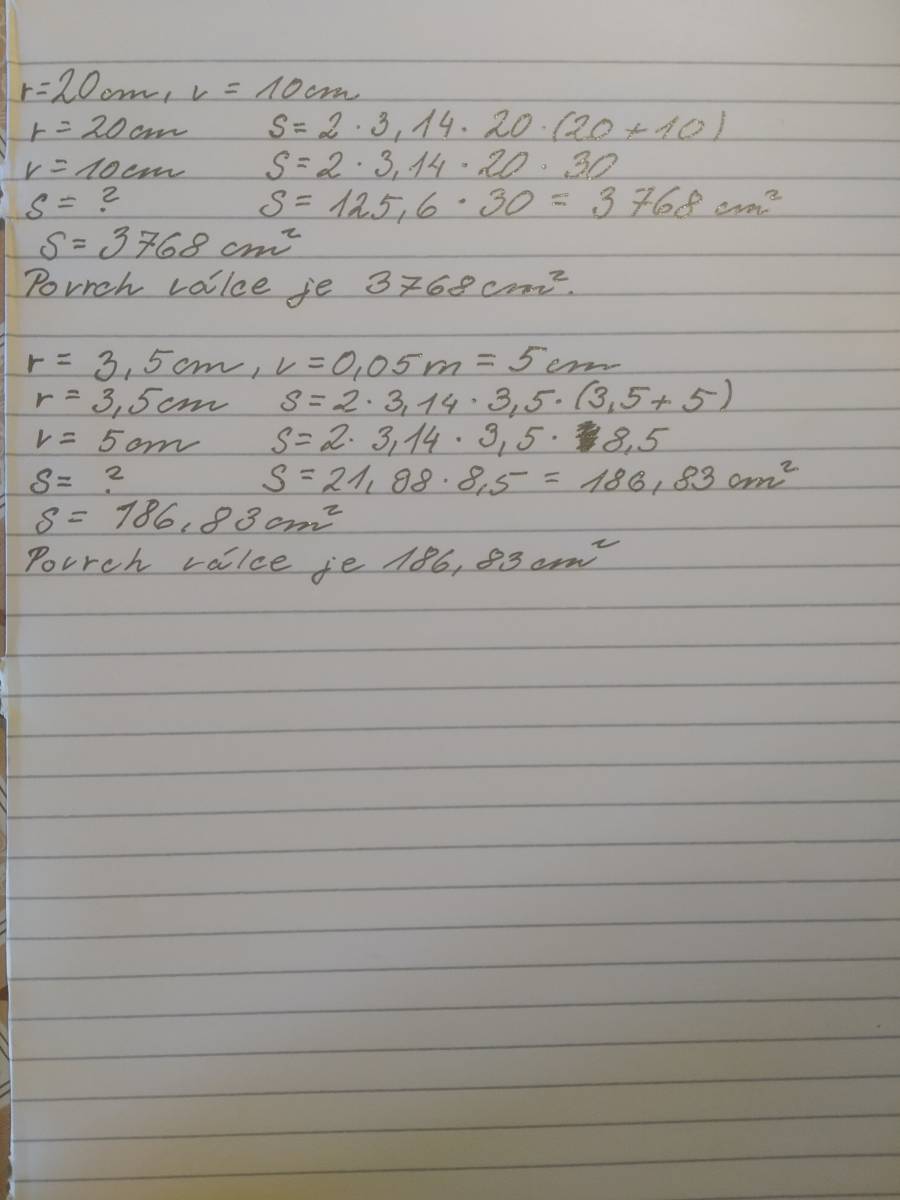 r=20cm, v = 10cm
r = 20cm S = 2 · 3,14 · 20 · (20 + 10)
v = 10cm S = 2 · 3,14 · 20 · 30
S = ? S = 125,6 · 30 = 3 768 cm²
S = 3768 cm²
Povrch válce je 3768 cm².
r = 3,5cm, v = 0,05m = 5 cm
r = 3,5cm S = 2 · 3,14 · 3,5 · (3,5 + 5)
v = 5cm S = 2 · 3,14 · 3,5 · 8,5
S = ? S = 21,98 · 8,5 = 186,83 cm²
S = 186,83 cm²
Povrch válce je 186,83 cm²